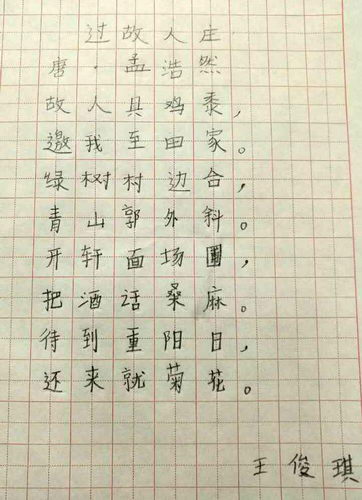 过故人庄
唐·孟浩然
故人具鸡黍，
邀我至田家。
绿树村边合，
青山郭外斜。
开轩面场圃，
把酒话桑麻。
待到重阳日，
还来就菊花。
王俊琪